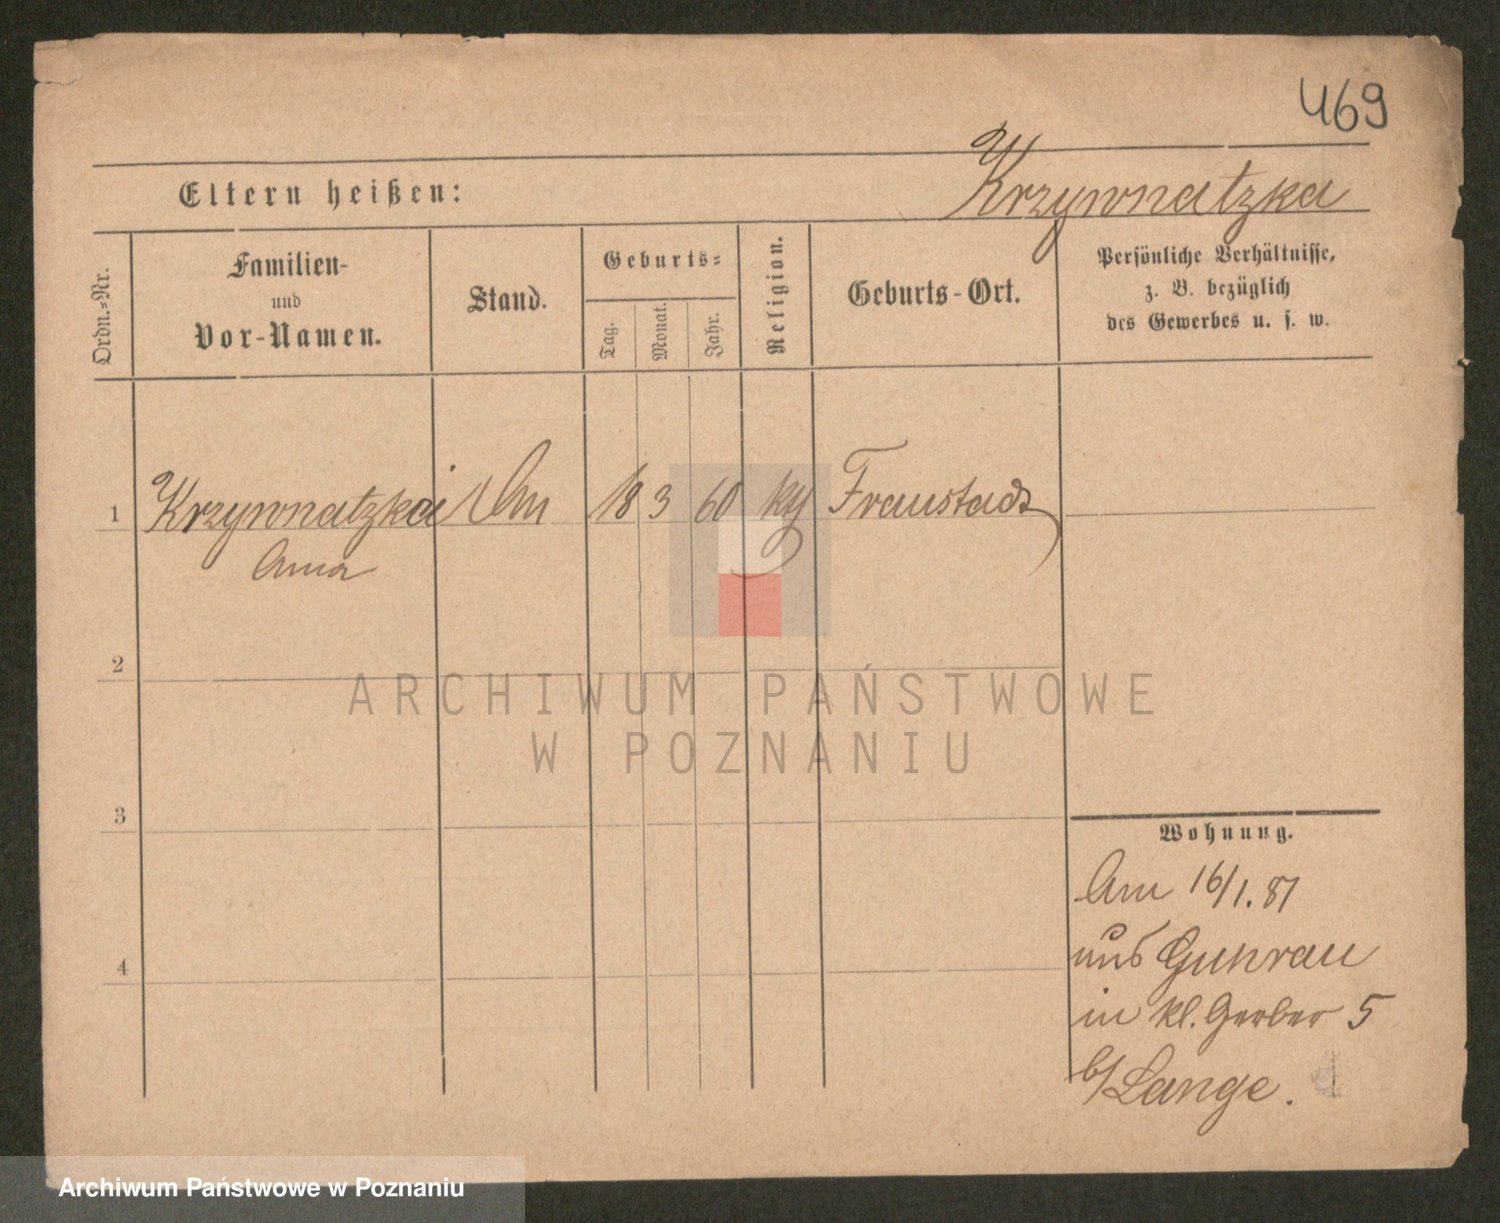 469
Krzywnatzka
Eltern heißen:
Ordn.-Nr.
Familien-
und
Vor-Namen.
Stand.
Geburts-
Tag.
Monat.
Jahr.
Religion.
Geburts-Ort.
Persönliche Verhältnisse,
z. B. bezüglich
des Gewerbes u. s. w.
1 Krzywnatzka 18 3 60 Fraustadt
Anna
2
3
4
ARCHIWUM PAŃSTWOWE
W POZNANIU
Wohnung.
Am 16/1. 87
aus Guhrau
in kl. Gerber 5
b/ Lange.
Archiwum Państwowe w Poznaniu